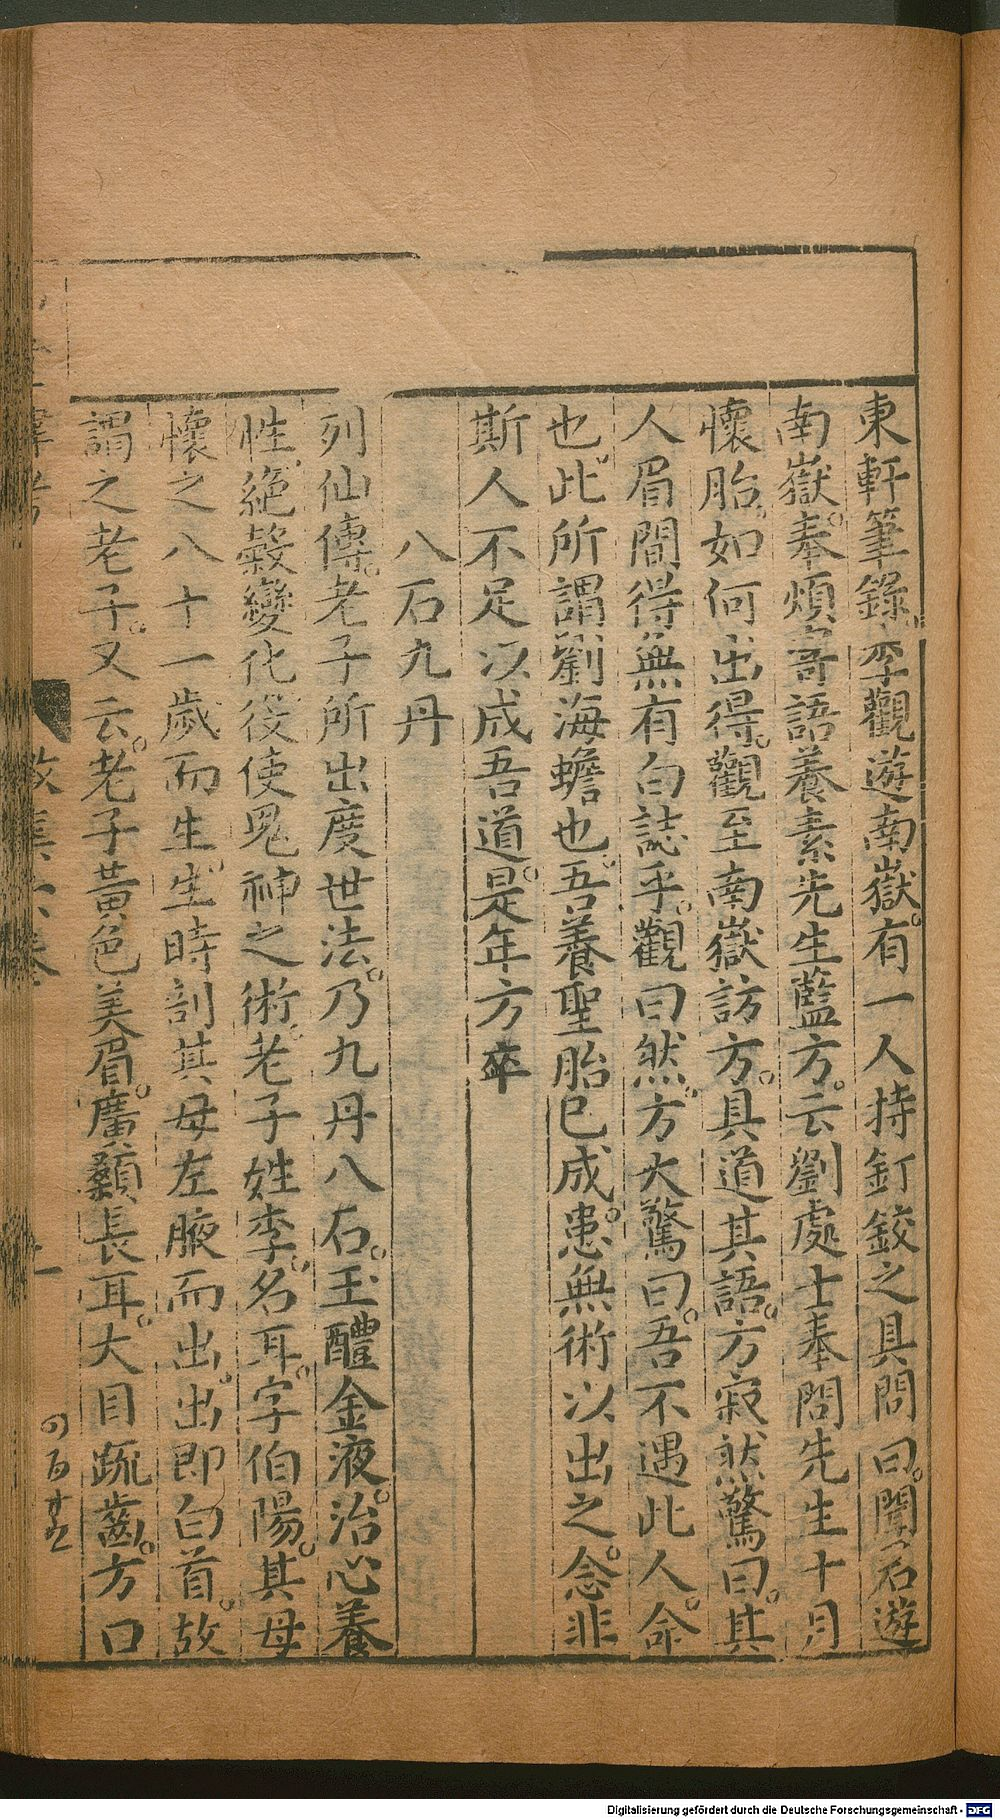 東軒筆錄。李觀遊南嶽。有一人持釘鉸之具問曰。聞君遊
南嶽。奉煩寄語養素先生藍方。云劉處士奉問先生十月
懷胎。如何出得。觀至南嶽訪方。具道其語。方寂然驚曰。其
人眉間得無有白誌乎。觀曰然。方大驚曰。吾不遇此人。命
也。此所謂劉海蟾也。吾養聖胎已成。患無術以出之。念非
斯人不足以成吾道。是年方卒
八石九丹
列仙傳。老子所出度世法。乃九丹八石。玉醴金液。治心養
性。絕穀變化。役使鬼神之術。老子姓李。名耳。字伯陽。其母
懷之八十一歲而生。生時剖其母左腋而出。出即白首。故
謂之老子。又云。老子黃色美眉。廣顙長耳。大目疏齒。方口
Digitalisierung gefördert durch die Deutsche Forschungsgemeinschaft - DFG